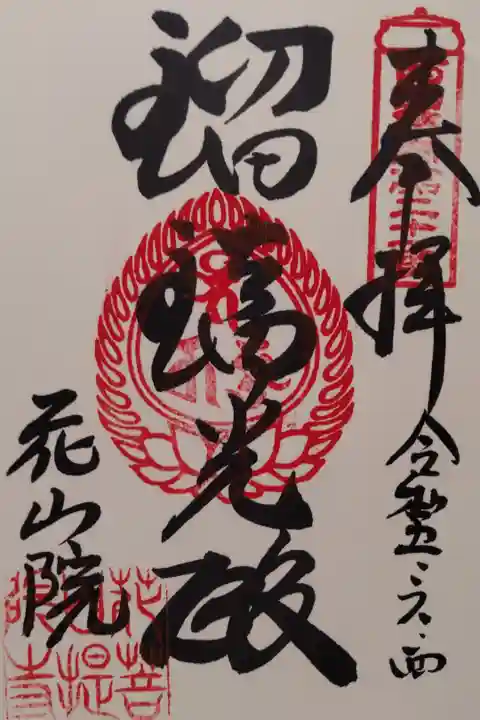 奉拝
令和五
瑠璃光殿
花山院
花山院
菩提寺